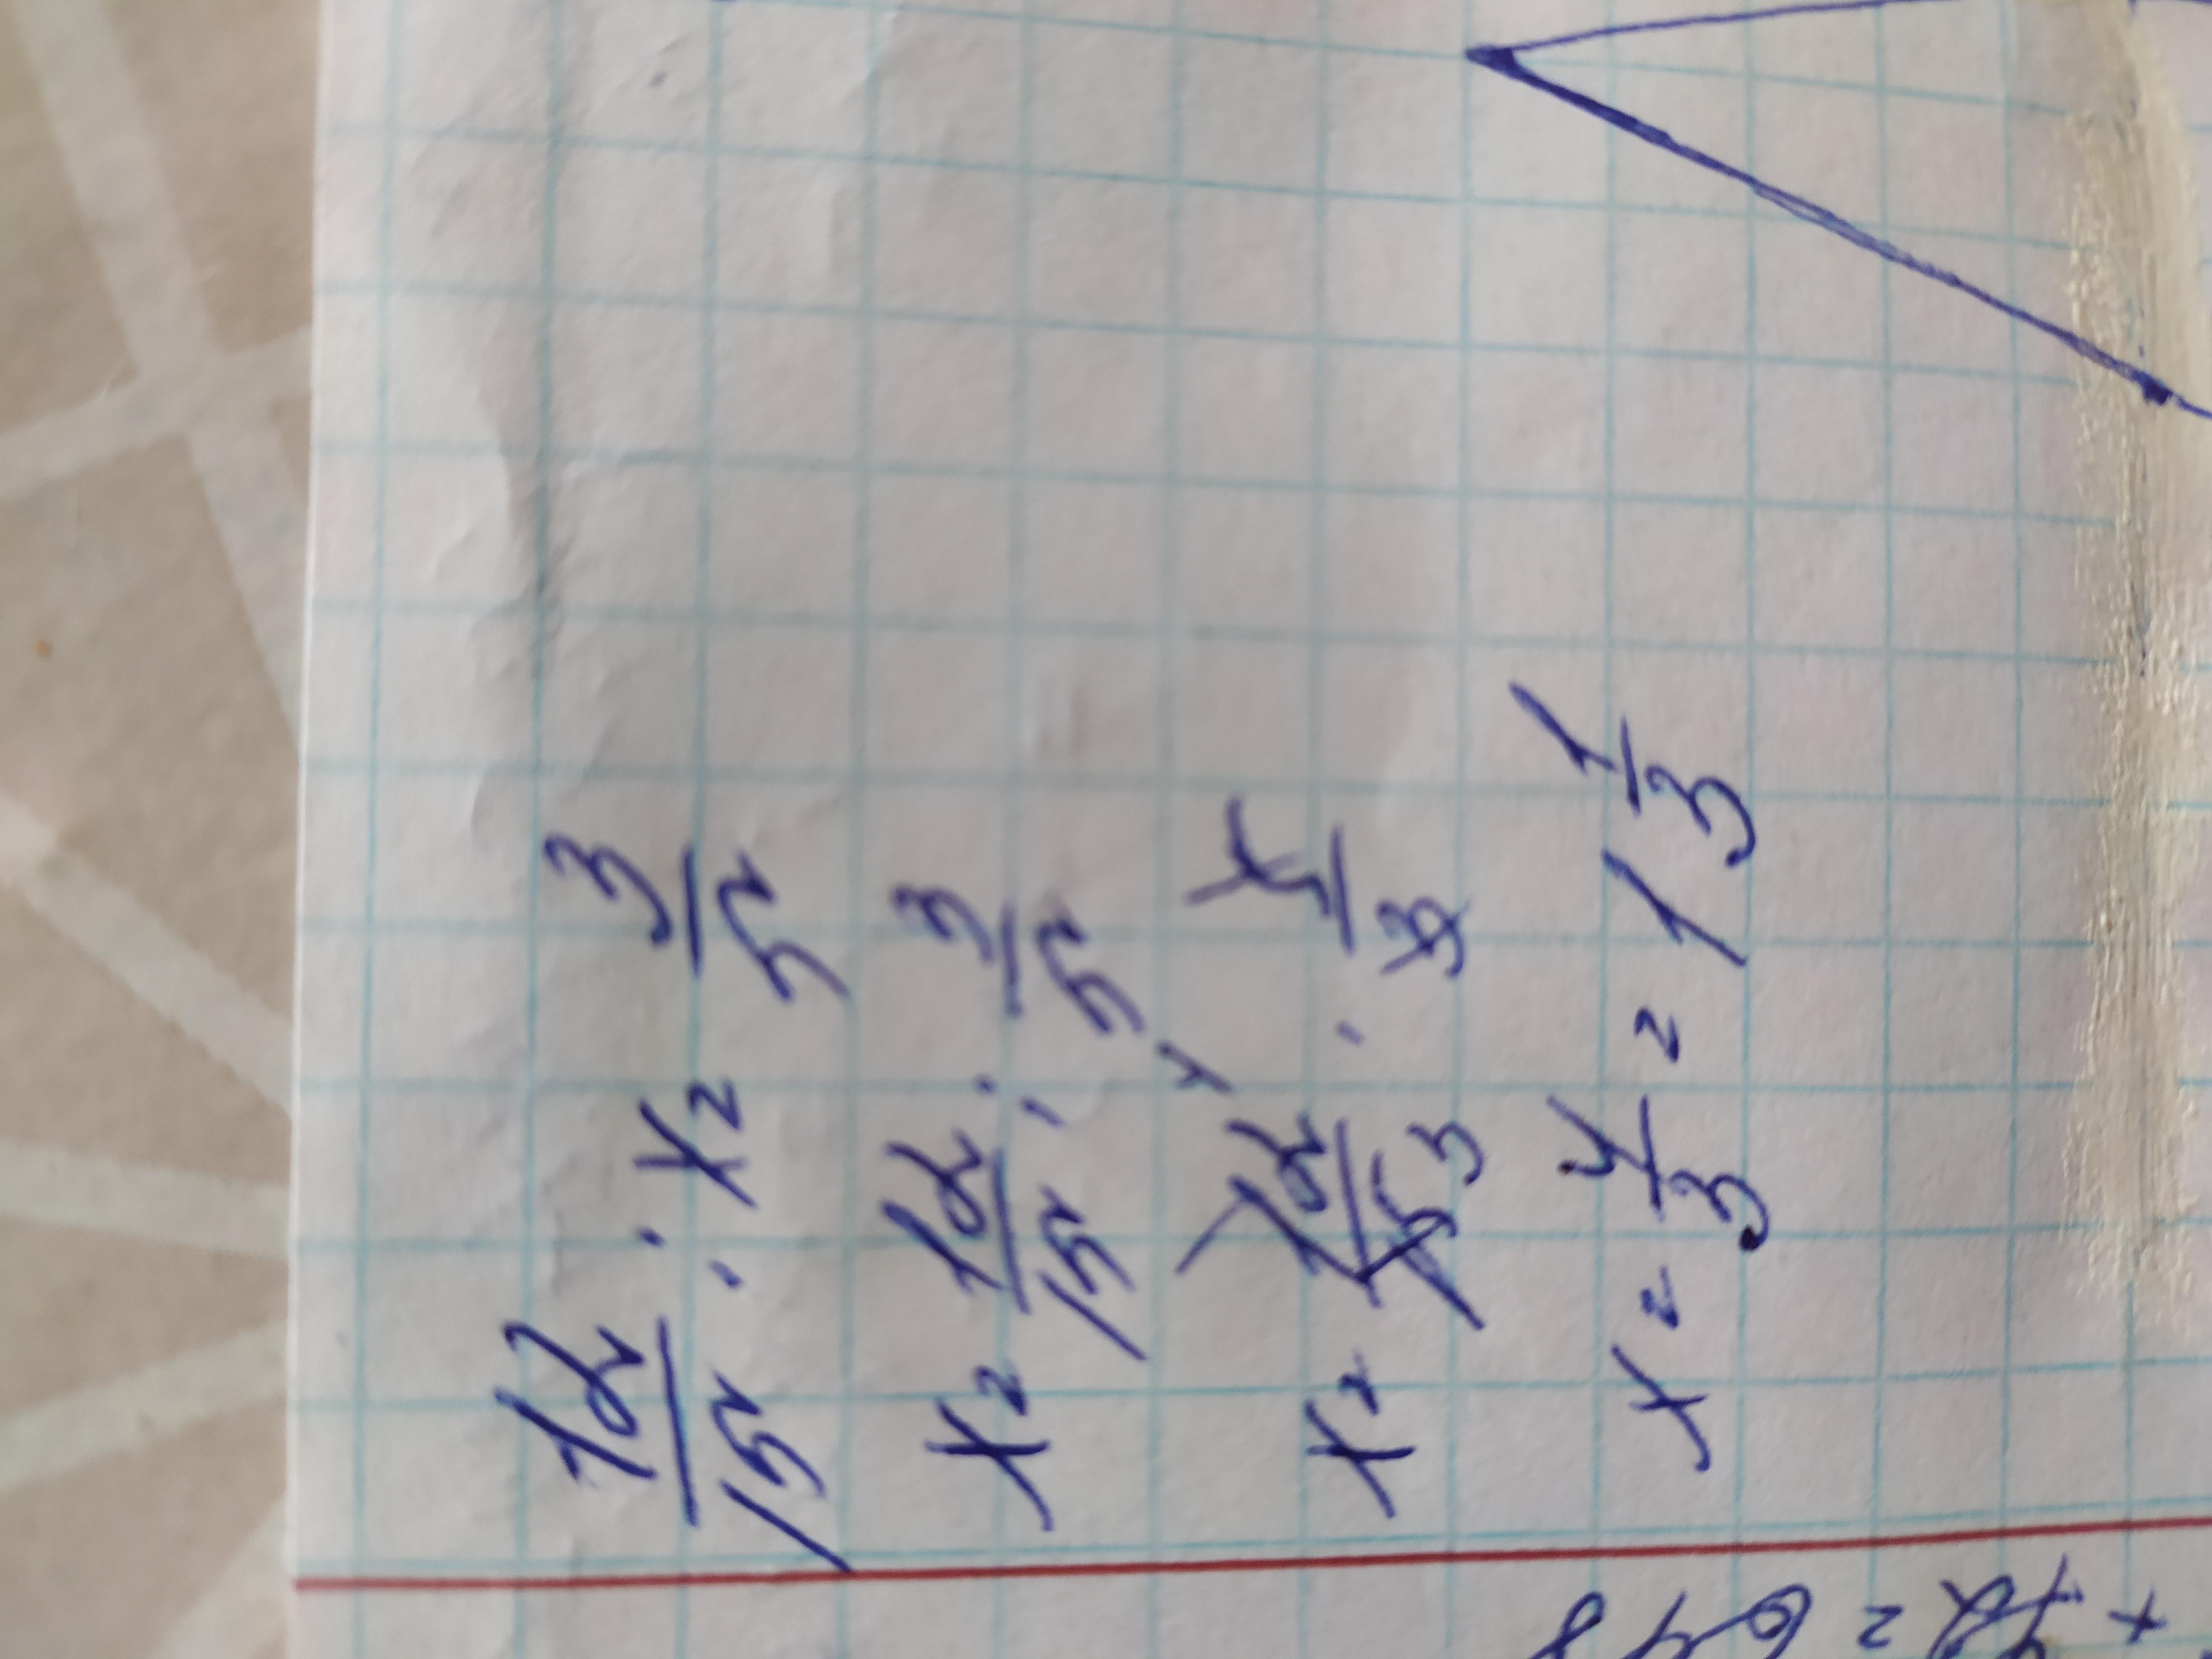 12/15 : x = 3/5
x = 12/15 : 3/5
x = 12/15 4 3 · 5/3
x = 4/3 = 1 1/3